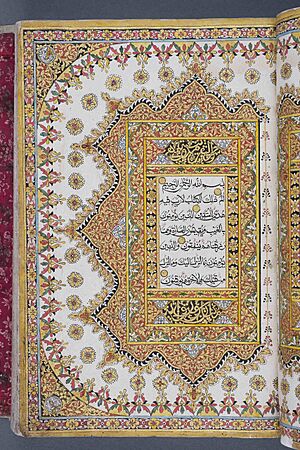 بسم الله الرحمن الرحيم
الم ذلك الكتاب لا ريب فيه
هدى للمتقين الذين يؤمنون
بالغيب ويقيمون الصلوة ومما
رزقناهم ينفقون والذين
يؤمنون بما انزل اليك وما انزل
من قبلك وبالاخرة هم يوقنون